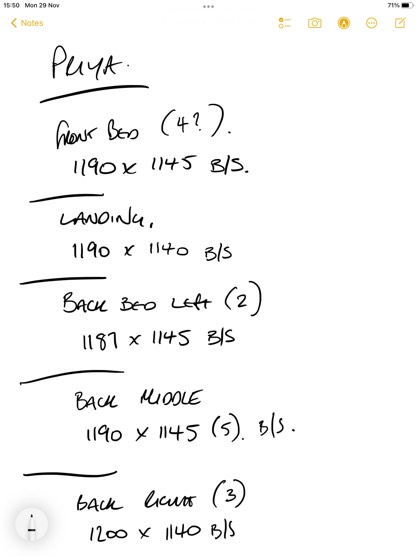 15:50 Mon 29 Nov
71%
Notes
PRIYA.
FRONT BED (4?).
1190 x 1145 B/S.
LANDING.
1190 x 1140 B/S
BACK BED LEFT (2)
1187 x 1145 B/S
BACK MIDDLE
1190 x 1145 (5). B/S.
BACK RIGHT (3)
1200 x 1140 B/S